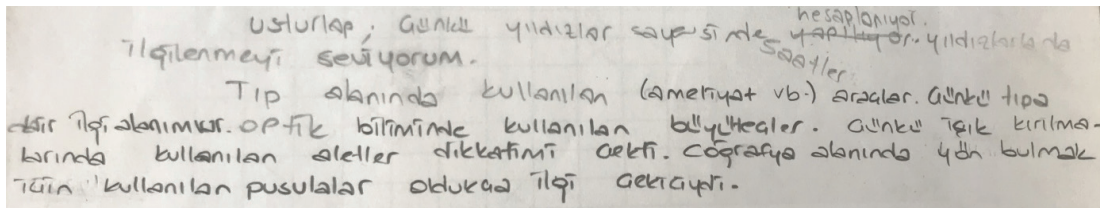 hesaplanıyor.
Usturlap; Çünkü yıldızlar sayesinde yapılıyor. yıldızlarlada
saatler
ilgilenmeyi seviyorum.
Tıp alanında kullanılan (ameriyat vb.) araçlar. Çünkü tıpa
dair ilgi alanım var. Optik biliminde kullanılan büyüteçler. Çünkü ışık kırılma-
larında kullanılan aletler dikkatimi çekti. Coğrafya alanında yön bulmak
için kullanılan pusulalar oldukça ilgi çekiciydi.